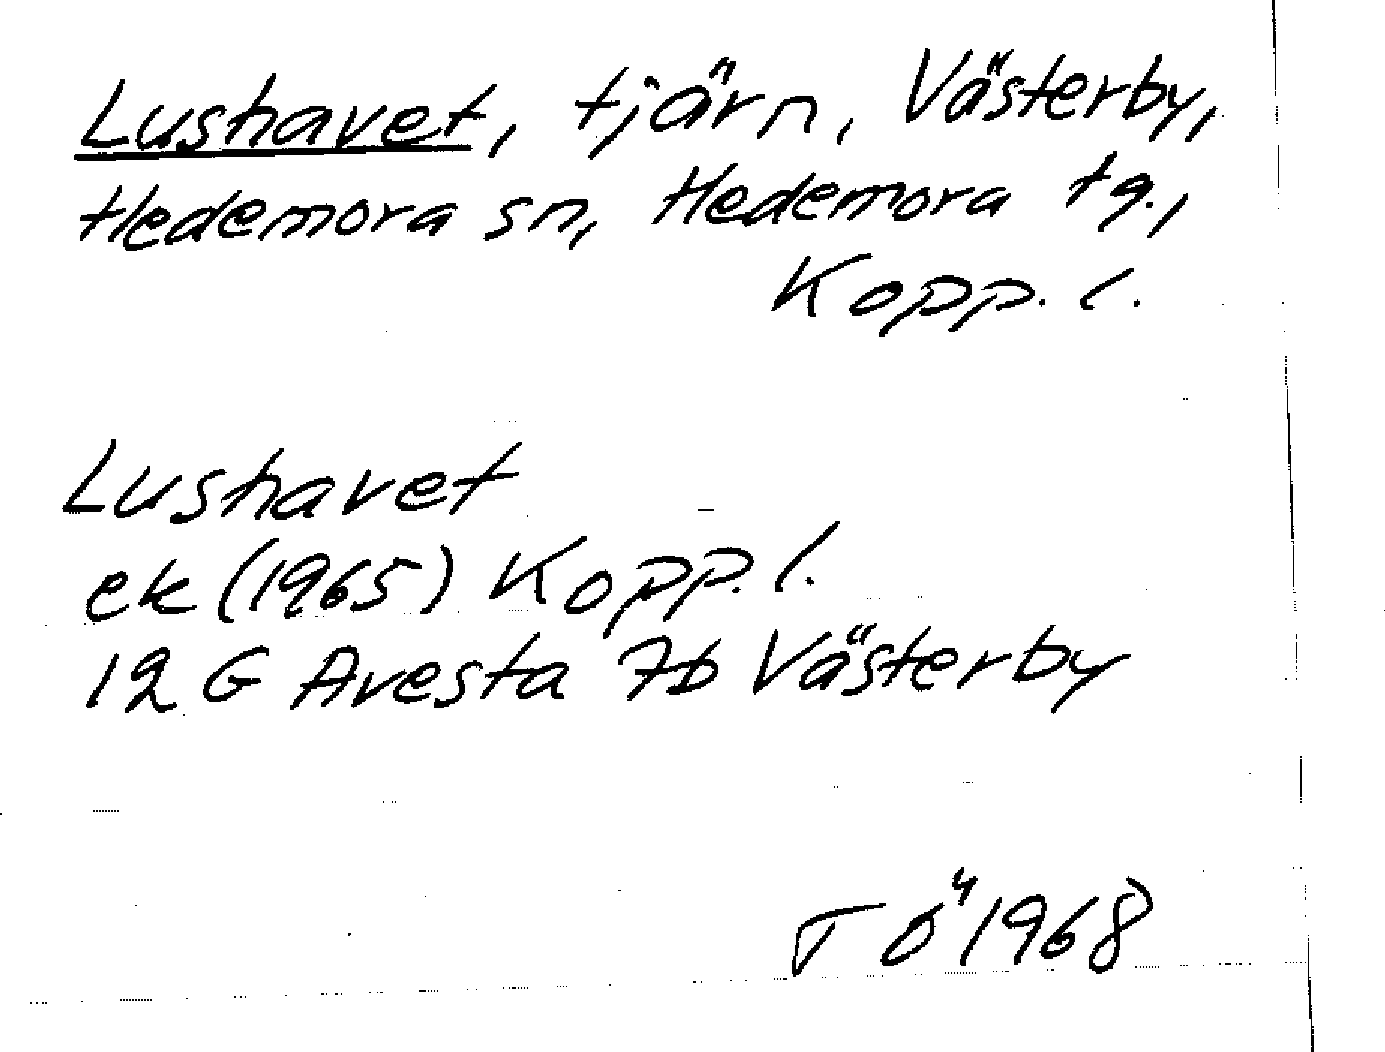 Lushavet, tjärn, Västerby,
Hedemora sn, Hedemora tg.,
Kopp. l.
Lushavet
ek (1965) Kopp. l.
12 G Avesta 7b Västerby
TÖ 1968